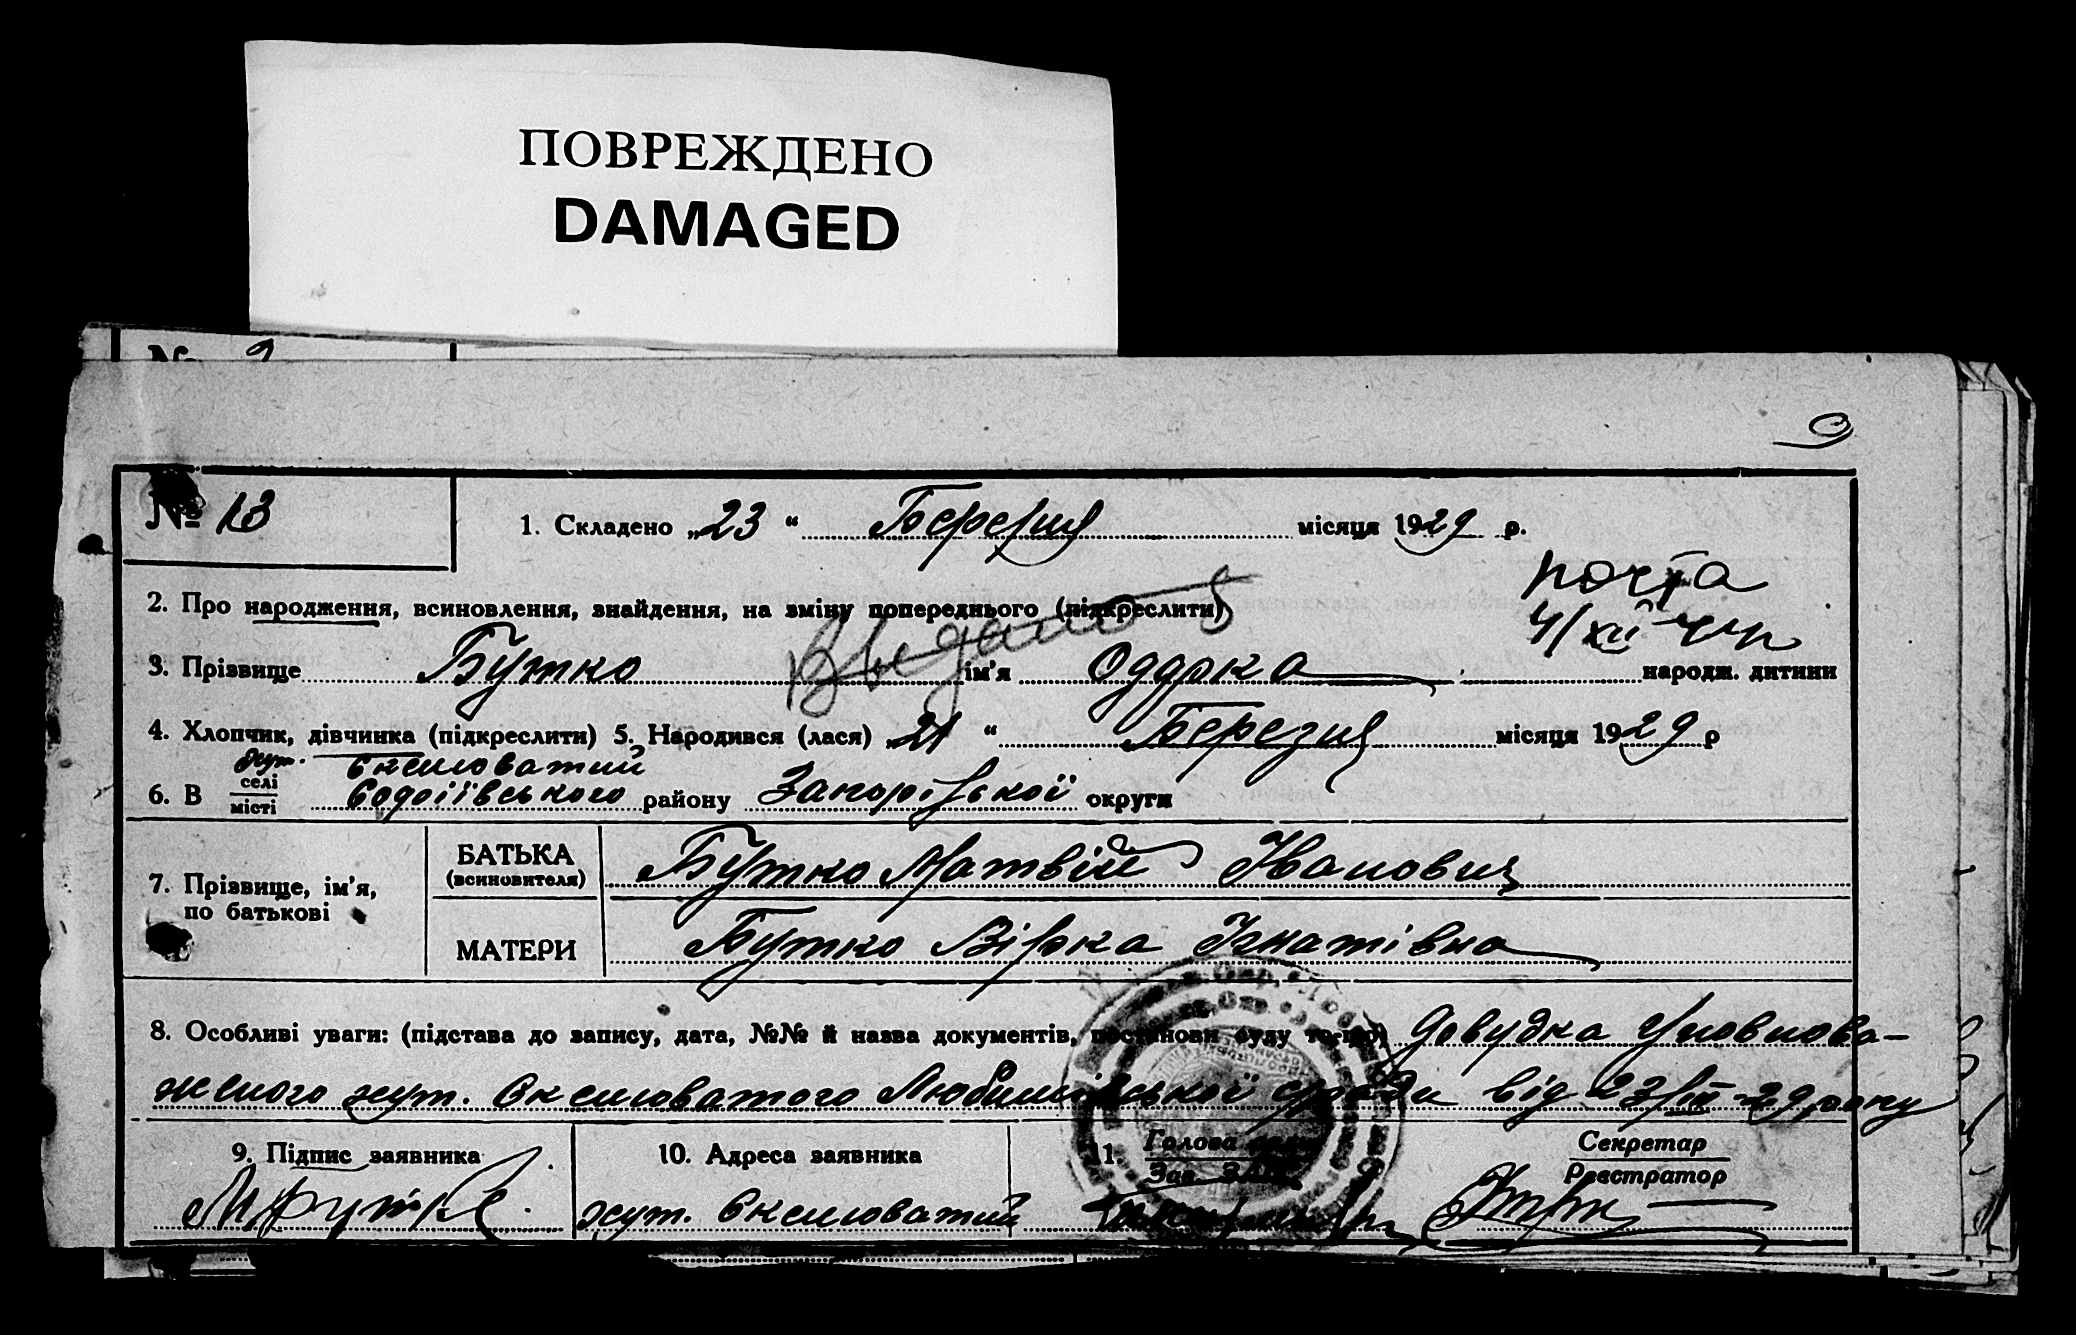 ПОВРЕЖДЕНО
DAMAGED
№ 2
9
№ 13
1. Складено „23“ Березня місяця 1929 р.
почта
4/XII
2. Про народження, всиновлення, знайдення, на зміну попереднього (підкреслити)
Выдано
3. Прізвище Бутко ім'я Одарка народж. дитини
4. Хлопчик, дівчинка (підкреслити) 5. Народився (лася) „21“ Березня місяця 1929 р
хут.
6. В селі місті району Запорізької округи
7. Прізвище, ім'я, по батькові
БАТЬКА (всиновителя) Бутко Матвій Іванович
МАТЕРИ Бутко Вірка Ігнатівна
8. Особливі уваги: (підстава до запису, дата, №№ й назва документів, постанови суду тощо) Довідка Уповнова-
женого хут. від 23/III-29 року
9. Підпис заявника
10. Адреса заявника
хут.
11. Голова
Зав. ЗАГС
Секретар
Реєстратор